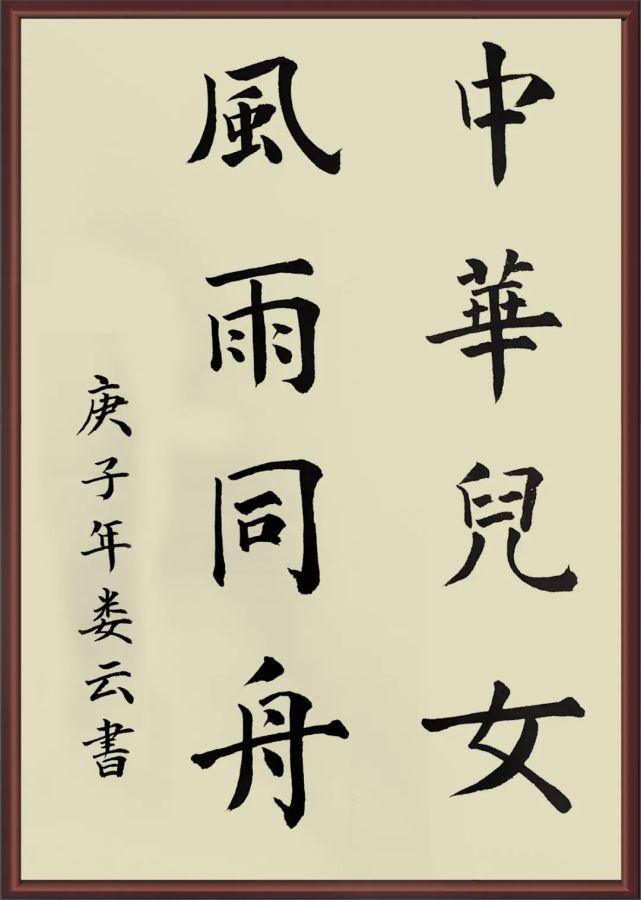 中華兒女
風雨同舟
庚子年娄云書